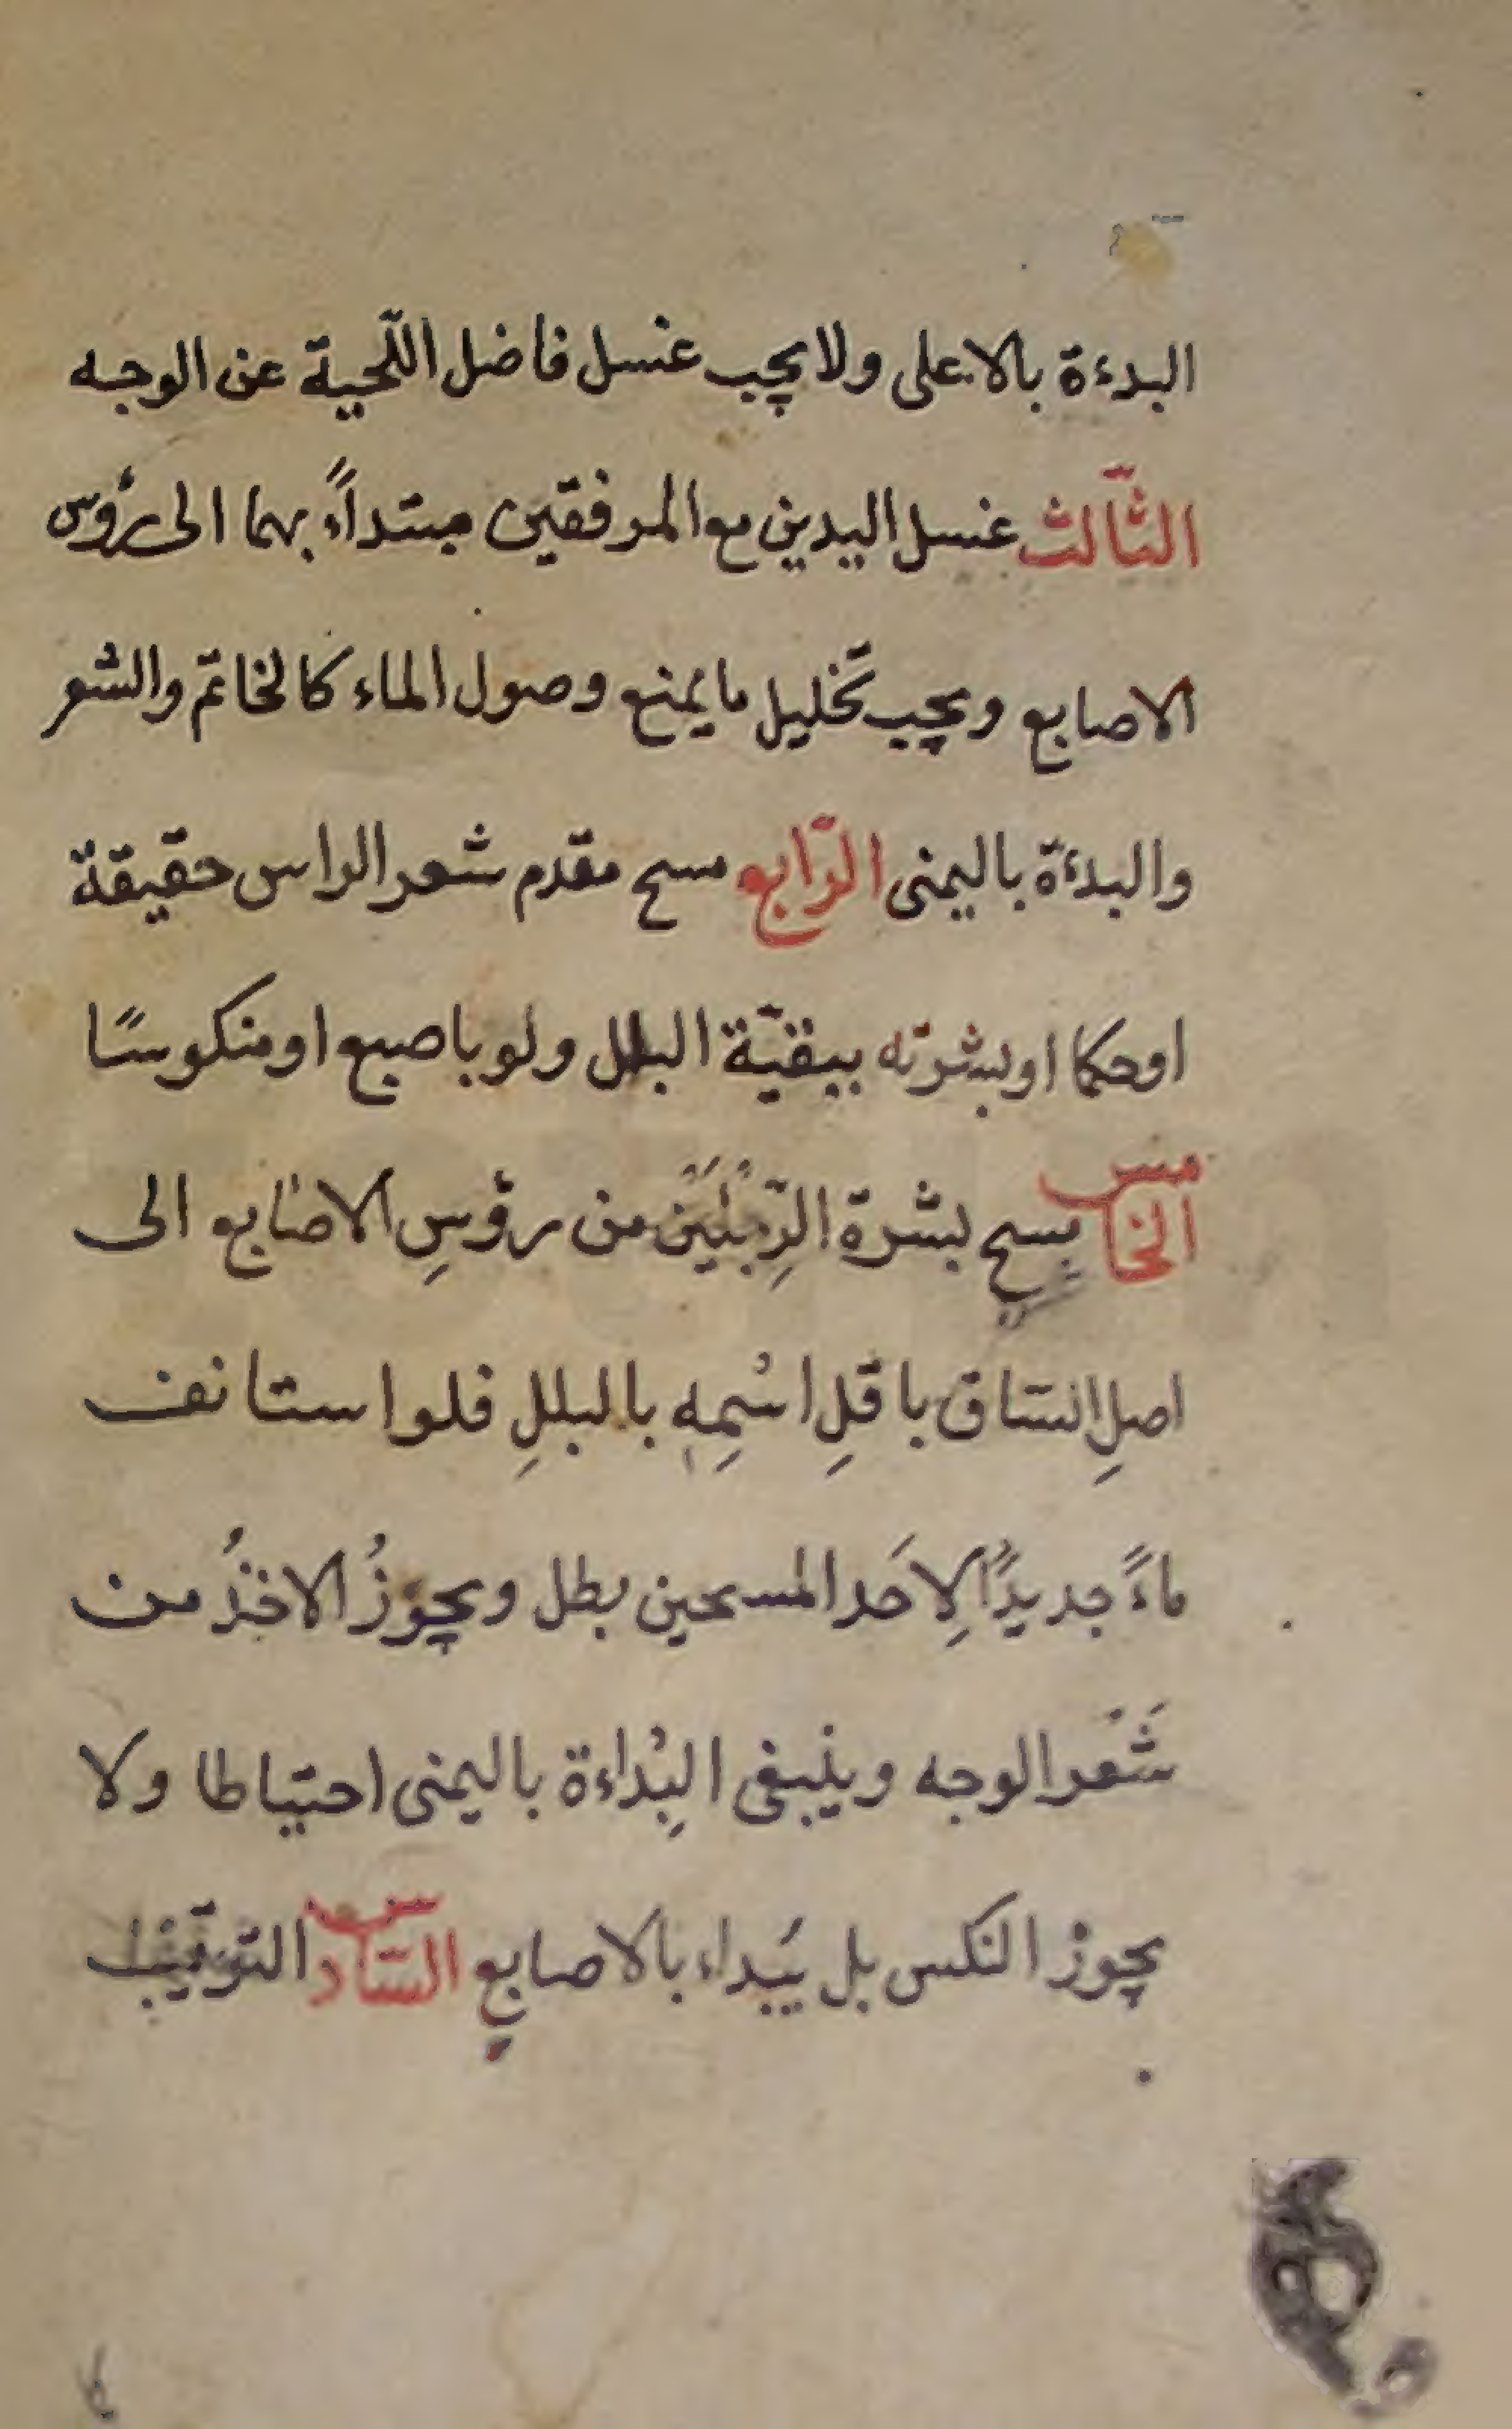 البدءة بالاعلى ولا يجب غسل فاضل اللّحية عن الوجه
الثّالث غسل اليدين مع المرفقين مبتداً بهما الى رؤس
الاصابع ويجب تخليل ما يمنع وصول الماء كالخاتم والشعر
والبدءة باليمنى الرّابع مسح مقدم شعر الراس حقيقة
او حكما او بشرته ببقيّة البلل ولو باصبع او منكوسًا
الخامس مسح بشرة الرِّجْلَيْنِ من رؤسِ الاصابع الى
اصلِ السّاق باقلِ اسْمِهِ بالبللِ فلو استانف
ماءً جديدًا لِاَحد المسحين بطل ويجوزُ الاخذُ من
شَعْر الوجه وينبغى البِدْاءة باليمنى احتياطا ولا
يجوز النكس بل يبداء بالاصابعِ السّادس الترتيب